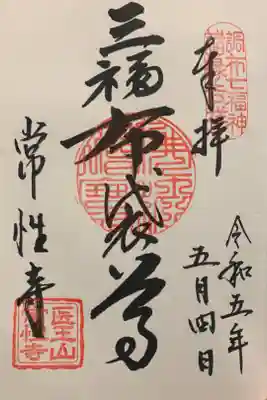 奉拝
調布七福神
令和五年
五月四日
三福布袋尊
常性寺
医王山
常性寺